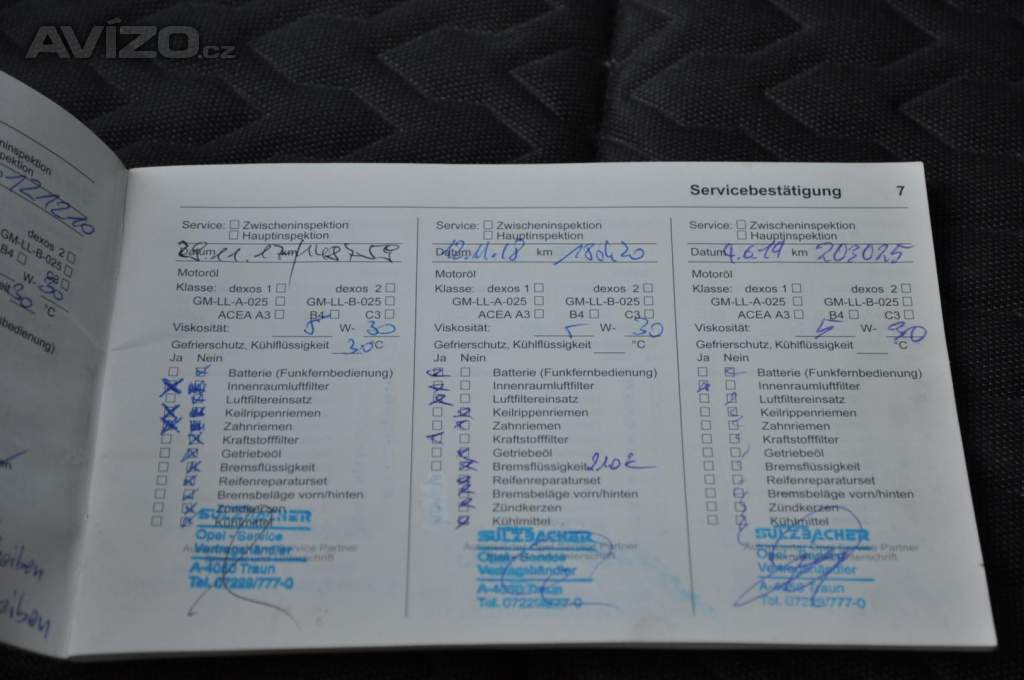 AVÍZO.cz
ninspektion
pektion
121210
dexos 2
GM-LL-B-025
B4
W- 30
30 °C
nbedienung)
Servicebestätigung 7
Service: Zwischeninspektion
Hauptinspektion
Datum km
Motoröl
Klasse: dexos 1 dexos 2
GM-LL-A-025 GM-LL-B-025
ACEA A3 B4 C3
Viskosität: 5 W- 30
Gefrierschutz, Kühlflüssigkeit 30 °C
Ja Nein
Batterie (Funkfernbedienung)
Innenraumluftfilter
Luftfiltereinsatz
Keilrippenriemen
Zahnriemen
Kraftstofffilter
Getriebeöl
Bremsflüssigkeit
Reifenreparaturset
Bremsbeläge vorn/hinten
Zündkerzen
Kühlmittel
SULZBACHER
Opel - Service
Vertragshändler
A-4050 Traun
Tel. 07229/777-0
Service: Zwischeninspektion
Hauptinspektion
Datum 12.11.18 km 180420
Motoröl
Klasse: dexos 1 dexos 2
GM-LL-A-025 GM-LL-B-025
ACEA A3 B4 C3
Viskosität: 5 W- 30
Gefrierschutz, Kühlflüssigkeit °C
Ja Nein
Batterie (Funkfernbedienung)
Innenraumluftfilter
Luftfiltereinsatz
Keilrippenriemen
Zahnriemen
Kraftstofffilter
Getriebeöl
Bremsflüssigkeit
Reifenreparaturset
Bremsbeläge vorn/hinten
Zündkerzen
Kühlmittel
SULZBACHER
Opel - Service Partner
Vertragshändler
A-4050 Traun
Tel. 07229/777-0
Service: Zwischeninspektion
Hauptinspektion
Datum 4.6.19 km 203025
Motoröl
Klasse: dexos 1 dexos 2
GM-LL-A-025 GM-LL-B-025
ACEA A3 B4 C3
Viskosität: 5 W- 30
Gefrierschutz, Kühlflüssigkeit °C
Ja Nein
Batterie (Funkfernbedienung)
Innenraumluftfilter
Luftfiltereinsatz
Keilrippenriemen
Zahnriemen
Kraftstofffilter
Getriebeöl
Bremsflüssigkeit
Reifenreparaturset
Bremsbeläge vorn/hinten
Zündkerzen
Kühlmittel
SULZBACHER
Opel - Service Partner
Vertragshändler
A-4050 Traun
Tel. 07229/777-0